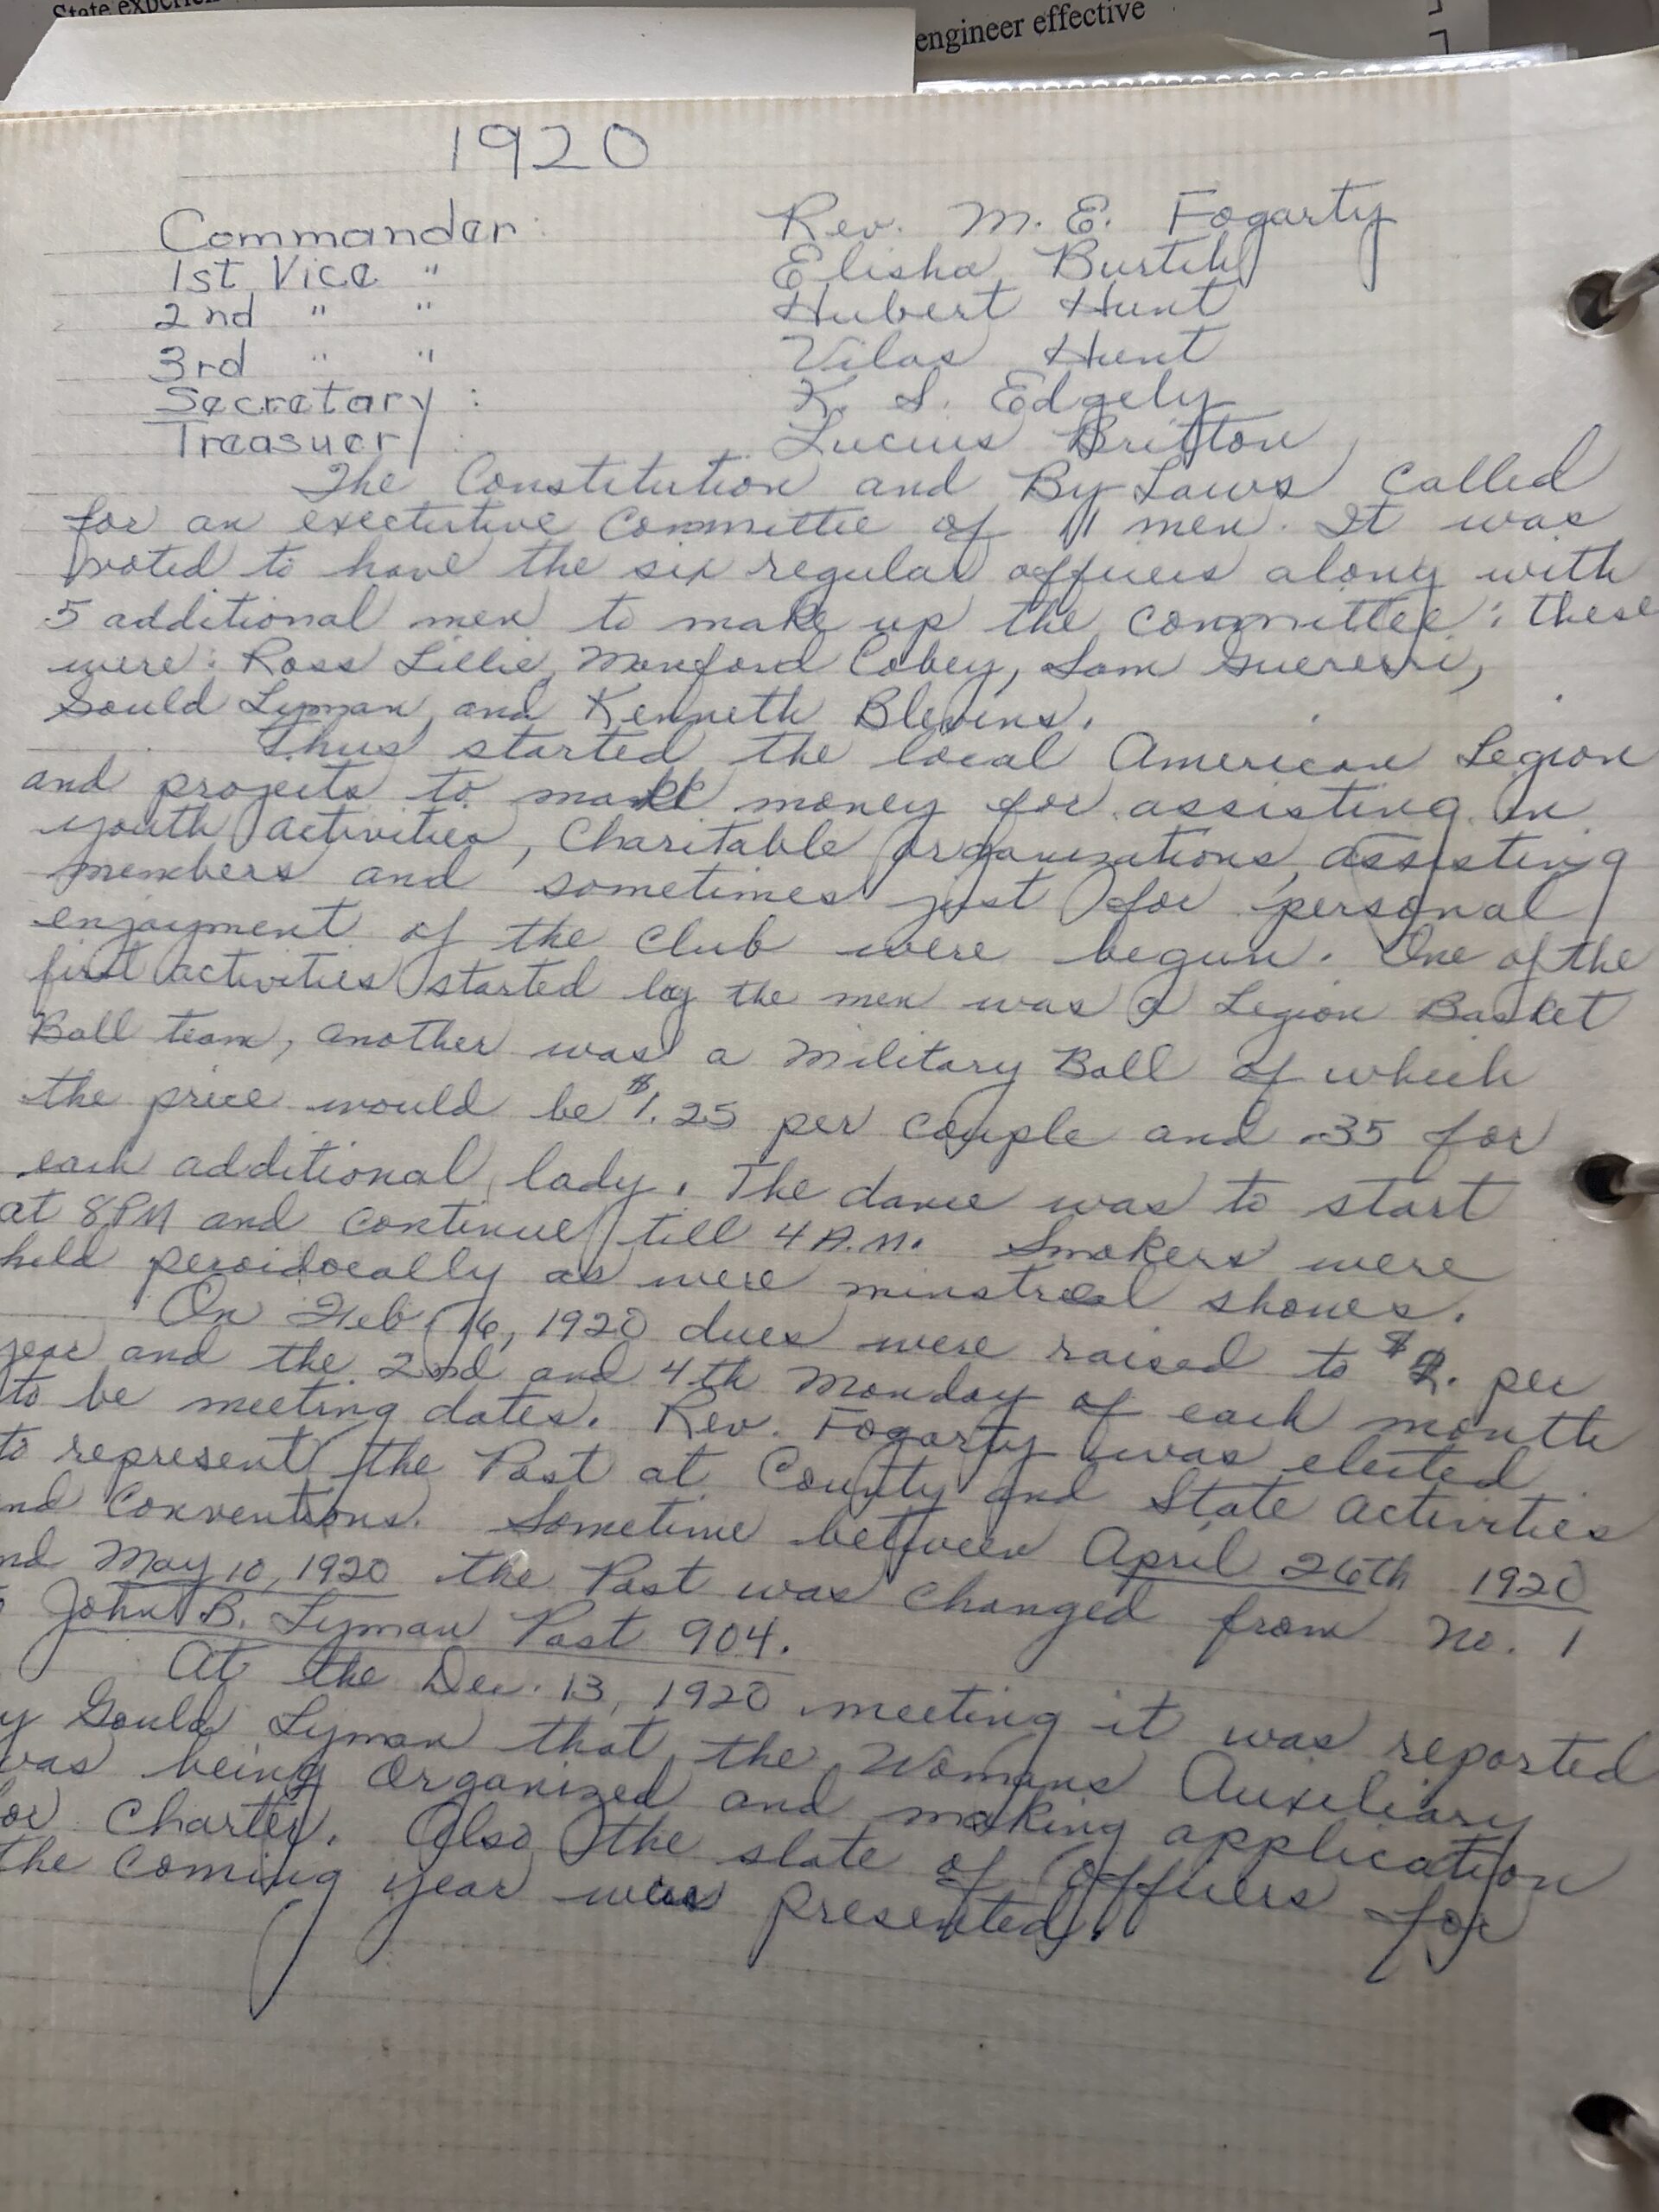 State experien
engineer effective
1920
Commander: Rev. M. E. Fogarty
1st Vice " Elisha
2nd " " Hubert Hunt
3rd " " Vilas Hunt
Secretary: K. S. Edgely
Treasuer: Lucius Britton
The Constitution and By-Laws called
for an exectutive committee of 11 men. It was
voted to have the six regular officers along with
5 additional men to make up the committee; these
were: Ross Lillie, Monford Cobey, Sam
Gould Lyman, and Kenneth Blevins.
Thus started the local American Legion
and projects to make money for assisting in
youth activities, Charitable organizations, assisting
members and sometimes just for personal
enjoyment of the club were begun. One of the
first activities started by the men was a Legion Basket
Ball team, another was a Military Ball of which
the price would be $1.25 per couple and .35 for
each additional lady. The dance was to start
at 8PM and continue till 4 A.M. Smokers were
held peroidocally as were minstreal shows.
On Feb. 16, 1920 dues were raised to $2. per
year and the 2nd and 4th Monday of each month
to be meeting dates. Rev. Fogarty was elected
to represent the Post at County and State activities
nd Conventions. Sometime between April 26th 1920
nd May 10, 1920 the Post was changed from No. 1
John B. Lyman Post 904.
At the Dec. 13, 1920 meeting it was reported
y Gould Lyman that the Womans Auxiliary
was being organized and making application
or Charter. Also the slate of officers for
the coming year was presented.